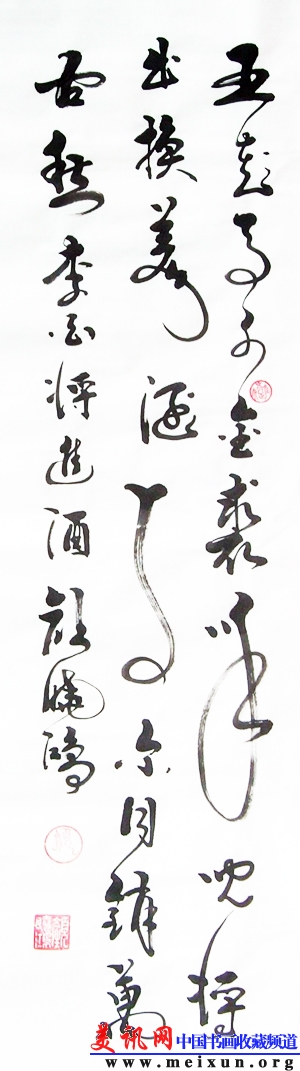 五花马千金裘呼儿将
出换美酒与尔同销萬
古愁 李白将進酒
美讯网 中国书画收藏频道
www.meixun.org